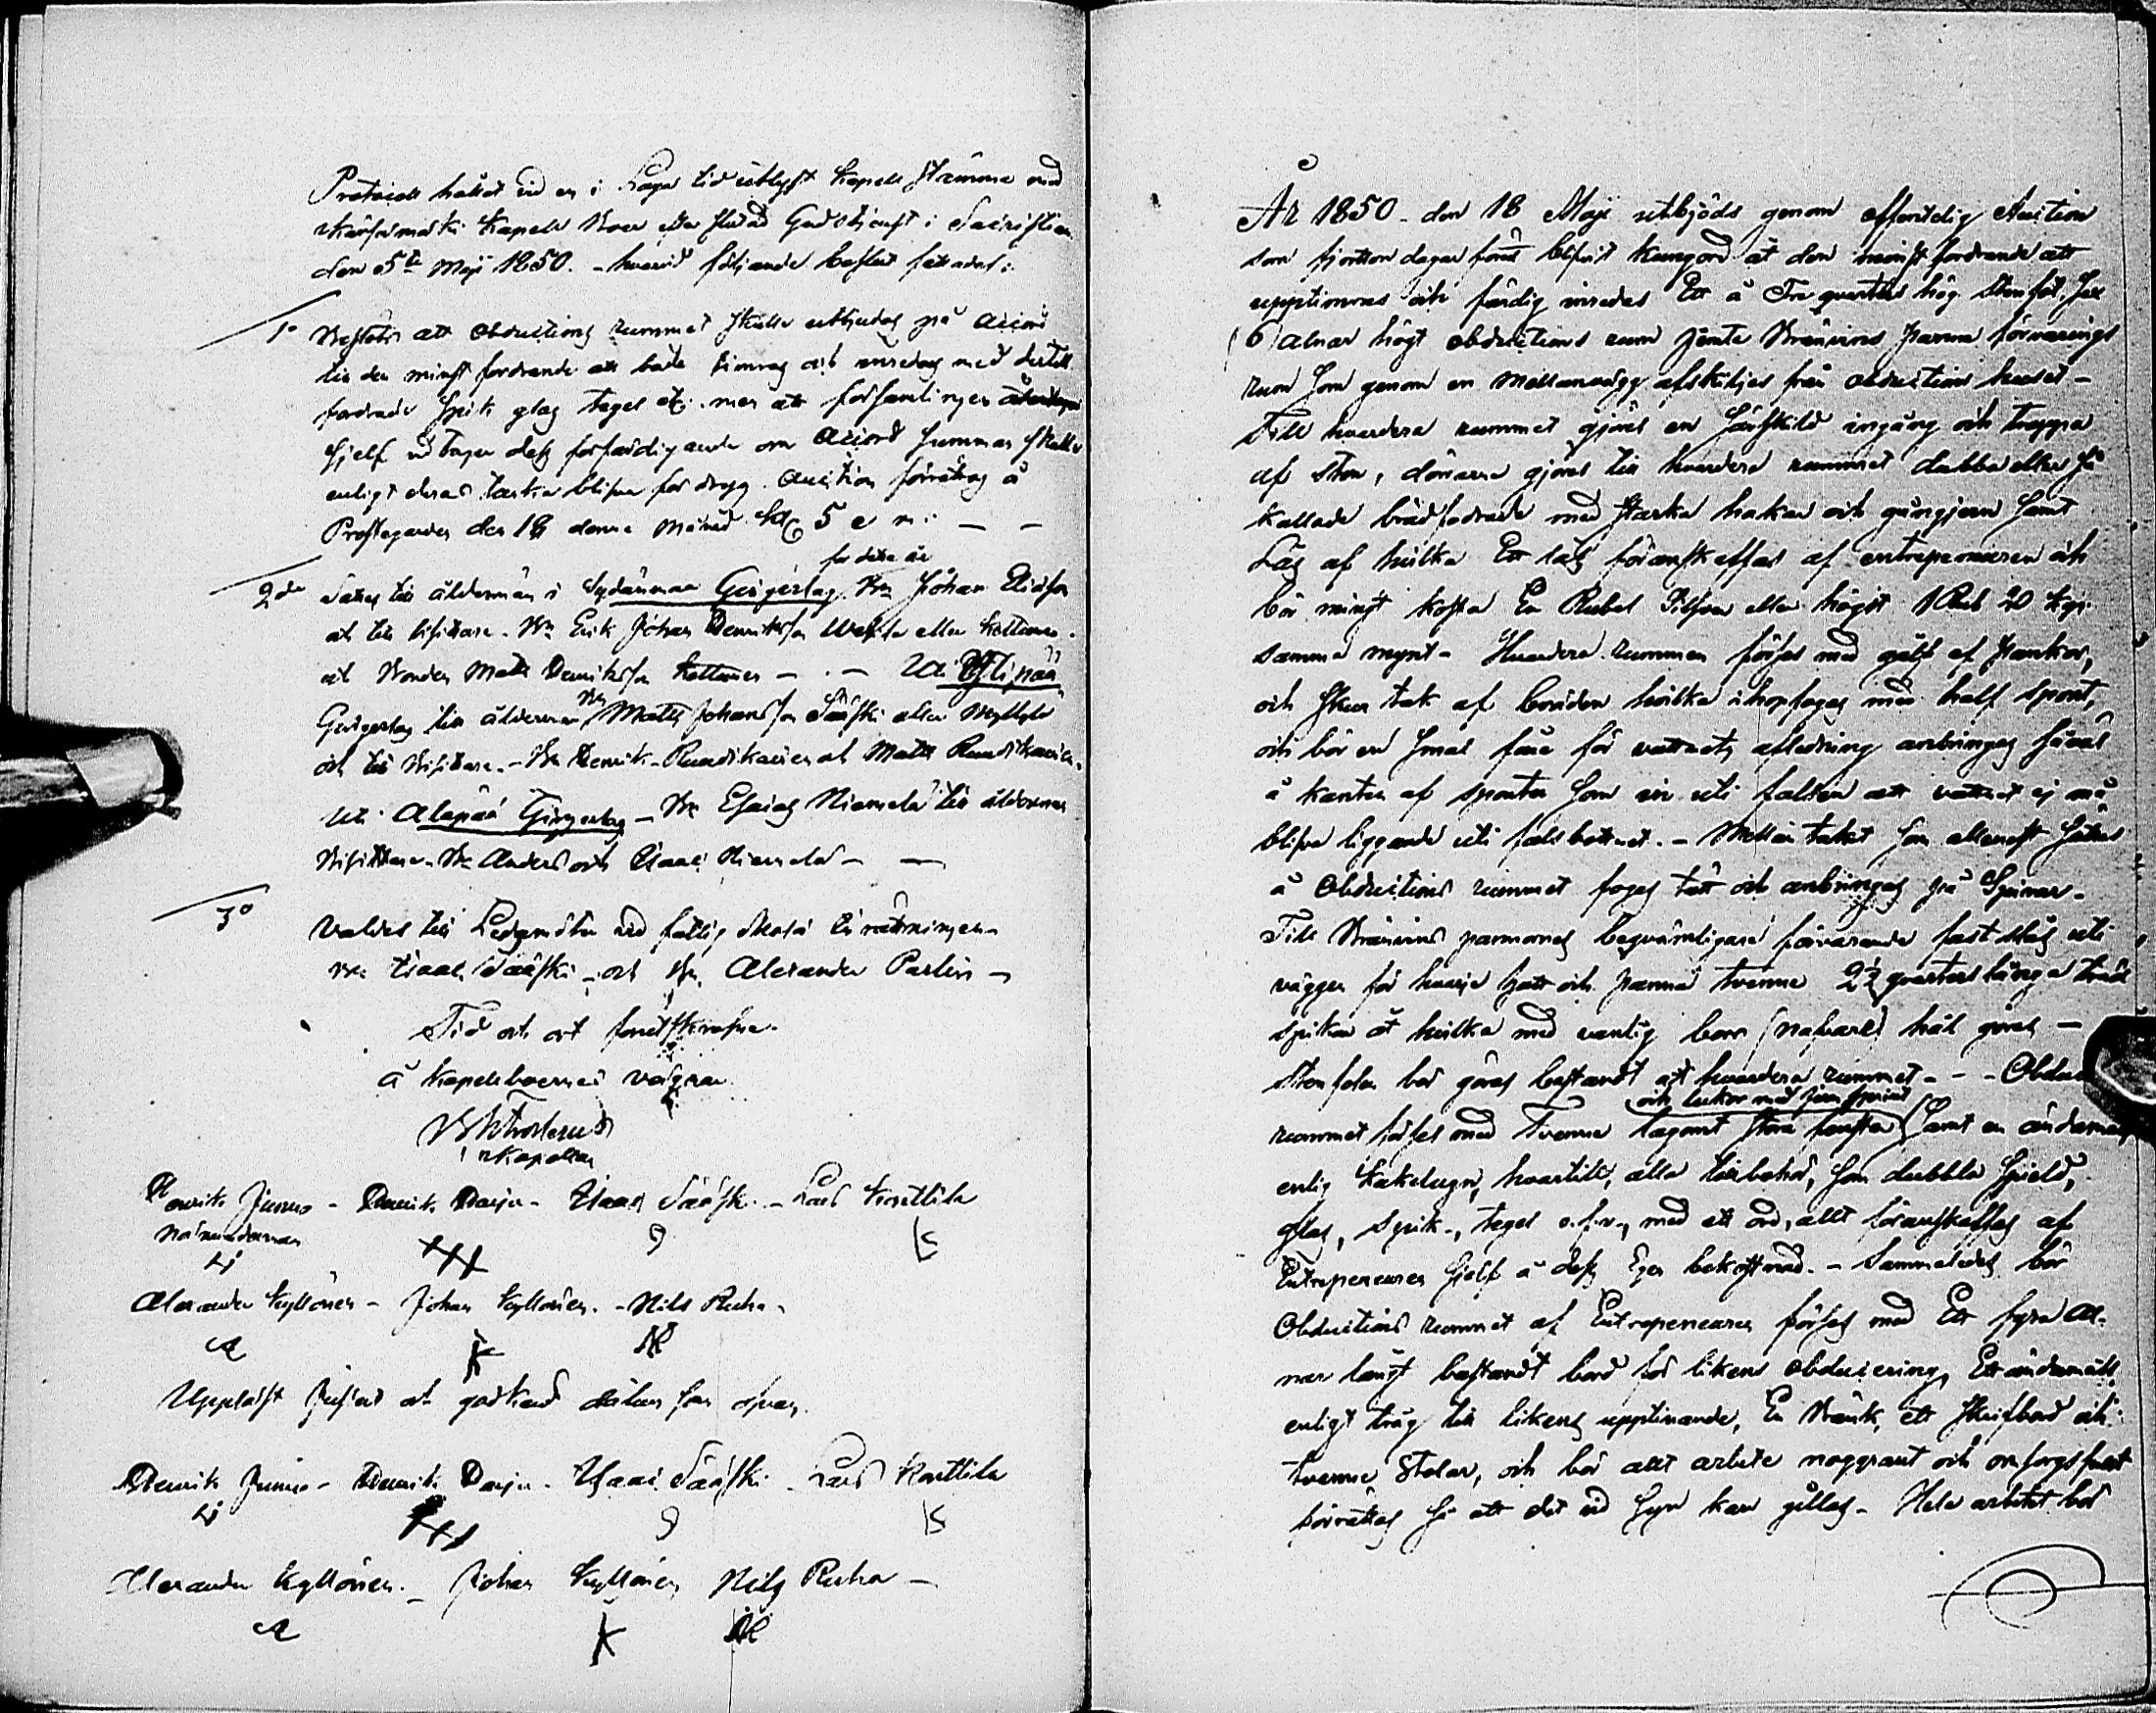 Protocoll hållet vid en i Laga tid utlyst Kapell stämma med
Kapell Boer efter slutad Gudstjenst i Sacristian
den 5te Maji 1850. - hvarvid följande beslut fattades:
1o att Obductions rummet skulle utbjudas på accord
till den minst fordrande att både timras och inredas med dertill
fordrade spik glas tegel etc. men att församlingen
sjelf åtager dess förfärdigande om accord summan skulle
enligt deras tanka blifva för dryg. Auction förrättas å
Prostegården den 18 denne månad Kl 5 e m: - -
för detta år
2do till ålderman i Sydänmaa Gergerlag Bn Johan Eliasson
och till Visitare. Bn Erik Johan Henriksson eller
och Bonden Matts Henriksson - . - Uti Ylipää
Gergerlag till ålderman Bn Matts Johansson Sääski eller
och till Visitare. - Bn Henrik Ruudikainen och Matts Ruudikainen
Uti Alapää Gergerlag - Bn Esaias Niemelä till ålderman
Visittare. Bn Anders och Isaac Niemelä - -
3o Valdes till Ledamöter vid fattig skola inrättningen
Bn Isaac Sääski - och Bn Alexander Parlin -
Tid och ort förutskrefne.
å Kapellboernes vägnar

Kapellan
Henrik Junno - Henrik Darju - Isaac Sääski - Lars Konttila
Nämndeman
Alexander Kyllönen - Johan Kyllönen. - Nils Ruha -
A K NR
Uppläst justerad och godkänd såsom som ofvan.
Henrik Junno - Henrik Darju - Isaac Sääski - Lars Konttila
Alexander Kyllönen. - Johan Kyllönen Nils Ruha -
A K NR
År 1850 - den 18 Maji utbjöds genom offentelig Auction
som fjorton dagar förut blifvit kungjord åt den minst fordrande att
upptimras och färdig inredas Ett å Tre quarters hög stenfot, Sex
(6) alnar högt obductions rum jemte Bränvins panne förvarings
rum som genom en mellanvägg afskiljes från obductions huset -
Till hvardera rummet gjöres en särskild ingång och trappa
af sten, dörrarne gjöres till hvardera rummet dubbla eller så
kallade brädfodrade med starka hakar och gångjern samt
Lås af hvilka Ett lås föranskaffas af entrepeneuren och
bör minst kosta En Rubel Silfver eller högst 1 Rub 20 kop:
samma mynt - Hvardera rummen förses med golf af plankor,
och skur tak af bräder hvilka ihopfogas med half spont,
och bör en smal fåra för vattnets afledning anbringas såväl
å kanten af sponten som in uti falsen att vattnet ej må
blifva liggande uti fals bottnet. - Mellan taket som allenast sättes
å Obductions rummet foges tätt och anbringas på Spiror.
Till Bränvins pannornas beqvämligare förvarande fast slås uti
väggen för hvarje hatt och panna tvenne 2½ quarters långa träd
spikar åt hvilka med vanlig borr (nafvare) hål göres -
Stenfoten bör göras bestånd åt hvardera rummet - - - Obduc
och luckor med jern sprint
rummet förses med Tvenne lagomt stora fönster samt en ändamål
enlig kakelugn, hvartill, alla tillbehör, som dubbla Spield,
glas, spik-, tegel o.s.v., med ett ord, allt föranskaffas af
Entrepeneuren Sjelf å dess Egen bekostnad. - Sammaledes bör
Obductions rummet af Entrepeneuren förses med Ett fyra al-
nar långt bestånd bord för likens obducering, Ett ändamåls
enligt tråg till likens upptinande, En Bänk, ett skrifbord och
tvenne Stolar, och bör allt arbete noggrant och omsorgsfullt
förrättas så att det vid Syn kan gillas - Hela arbetet bör